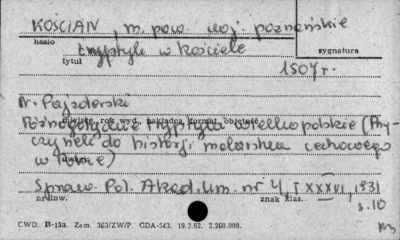 KOŚCIAN, m. pow. woj. poznańskie
hasło
tryptyk w kościele
sygnatura
tytuł
1507 r.
N. Pajzderski
miejsce, rok wyd., nakładca, format, objętość
Późnogotyckie tryptyki wielkopolskie (Przy-
czynek do historji malarstwa cechowego
w Polsce)
Spraw. Pol. Akad. Um. nr 4, T XXXVI, 1931
nr dow.
znak klas.
s. 10
CWD. B-15a. Zam. 363/ZW/P. GDA-543. 19.2.62. 2.260.000.